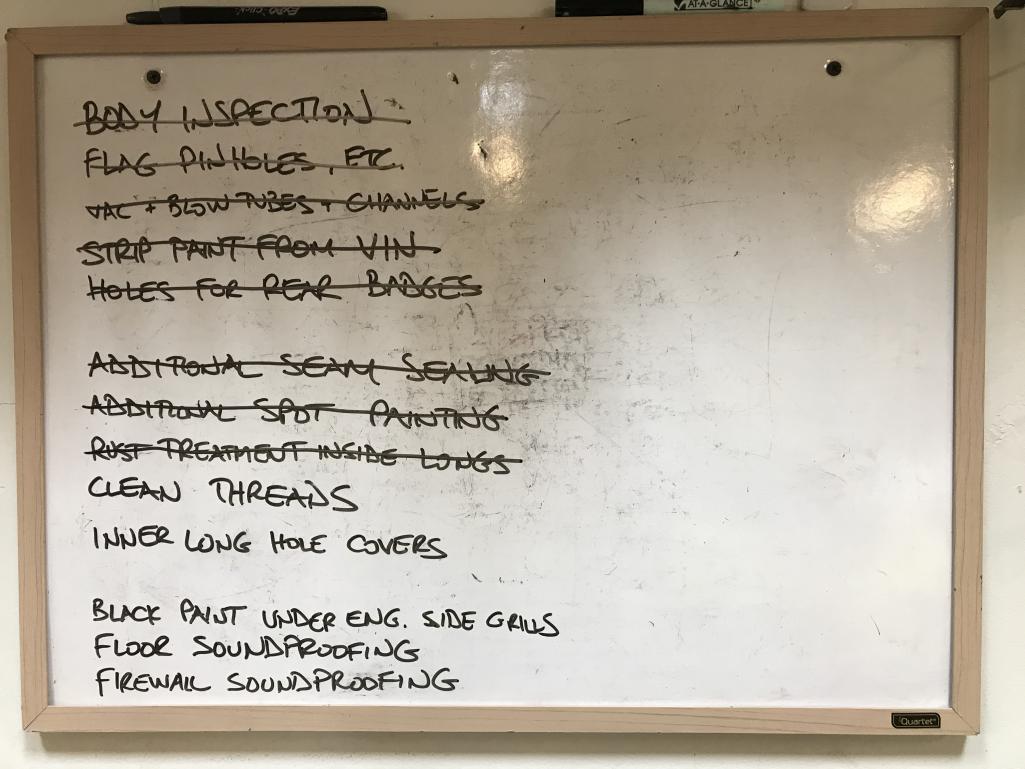 AT-A-GLANCE
BODY INSPECTION
FLAG PINHOLES, ETC.
VAC + BLOW TUBES + CHANNELS
STRIP PAINT FROM VIN
HOLES FOR REAR BADGES
ADDITIONAL SEAM SEALING
ADDITIONAL SPOT PAINTING
RUST TREATMENT INSIDE LONGS
CLEAN THREADS
INNER LONG HOLE COVERS
BLACK PAINT UNDER ENG. SIDE GRILLS
FLOOR SOUNDPROOFING
FIREWALL SOUNDPROOFING
Quartet